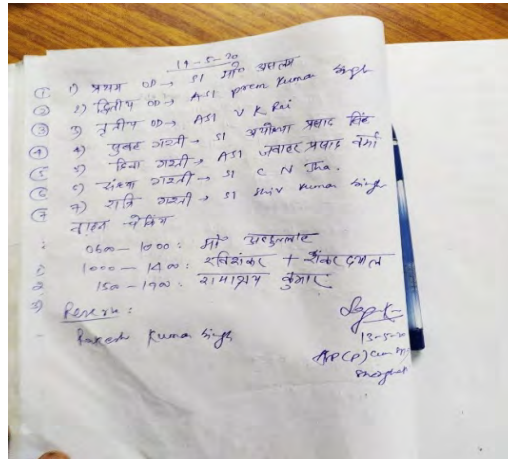 19-5-20
① 1) प्रथम OD → SI मो० असलम
② 2) द्वितीय OD → ASI prem Kumar Singh
③ 3) तृतीय OD → ASI V K Rai
④ 4) सुबह गश्ती → SI अयोध्या प्रसाद सिंह
⑤ 5) दिवा गश्ती → ASI जवाहर प्रसाद वर्मा
⑥ 6) संध्या गश्ती → SI C N Jha.
⑦ 7) रात्रि गश्ती → SI Shiv Kumar Singh
वाहन चेकिंग
0600 - 1000 : मो० अब्दुल्लाह
1000 - 1400 : रविशंकर + शंकर दयाल
1500 - 1900 : रामाश्रय कुमार
Reserve :
Rakesh Kumar Singh
13-5-20